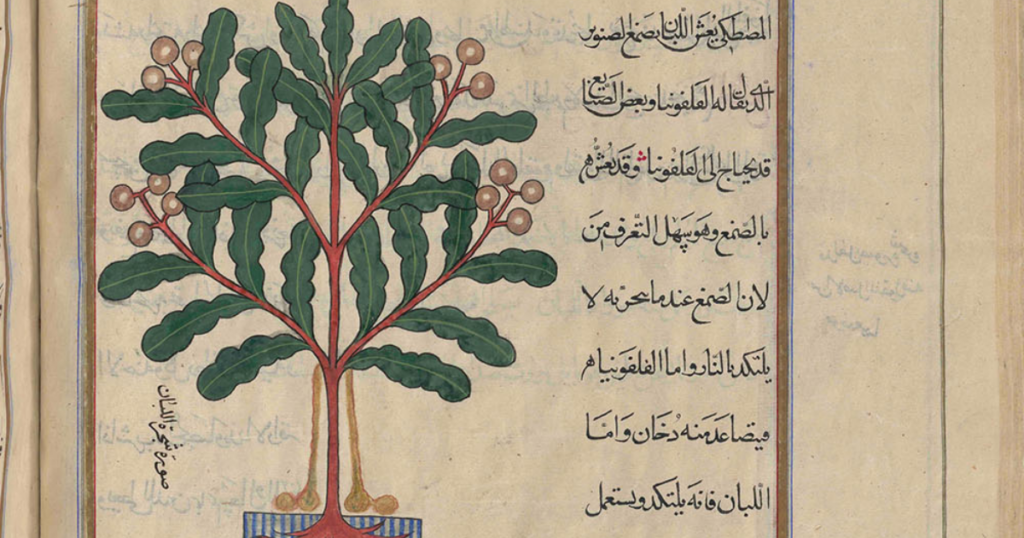 المصطكى يغش اللبان بصمغ الصنوبر
الذى يقال له القلفونيا وبعض الصنايع
قد يحتاج الى القلفونيا وقد يغش هم
بالصمغ وهو سهل التعرف من
لان الصمغ عندما يبخر به لا
يلتكد بالنار واما القلفونيا هر
فيتصاعد منه دخان واما
اللبان فانه يلتكد ويستعمل
صورة شجرة اللبان